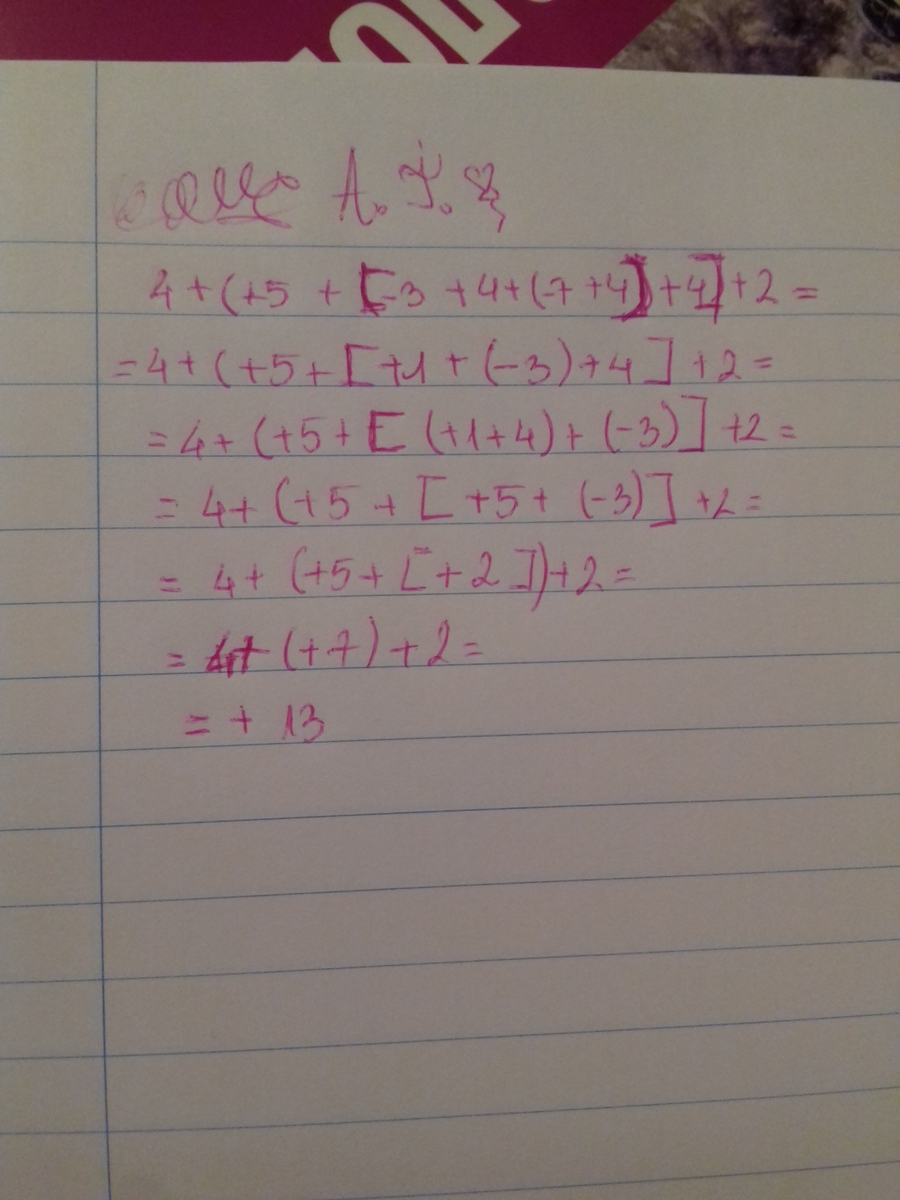 4+(+5 + [-3 +4+(-7 +4)+4]+2 =
=4+(+5+[+1+(-3)+4] +2=
=4+(+5+[(+1+4)+(-3)] +2=
= 4+(+5 +[+5+ (-3)] +2=
= 4+ (+5+[+2])+2=
= 4+(+7)+2=
= + 13